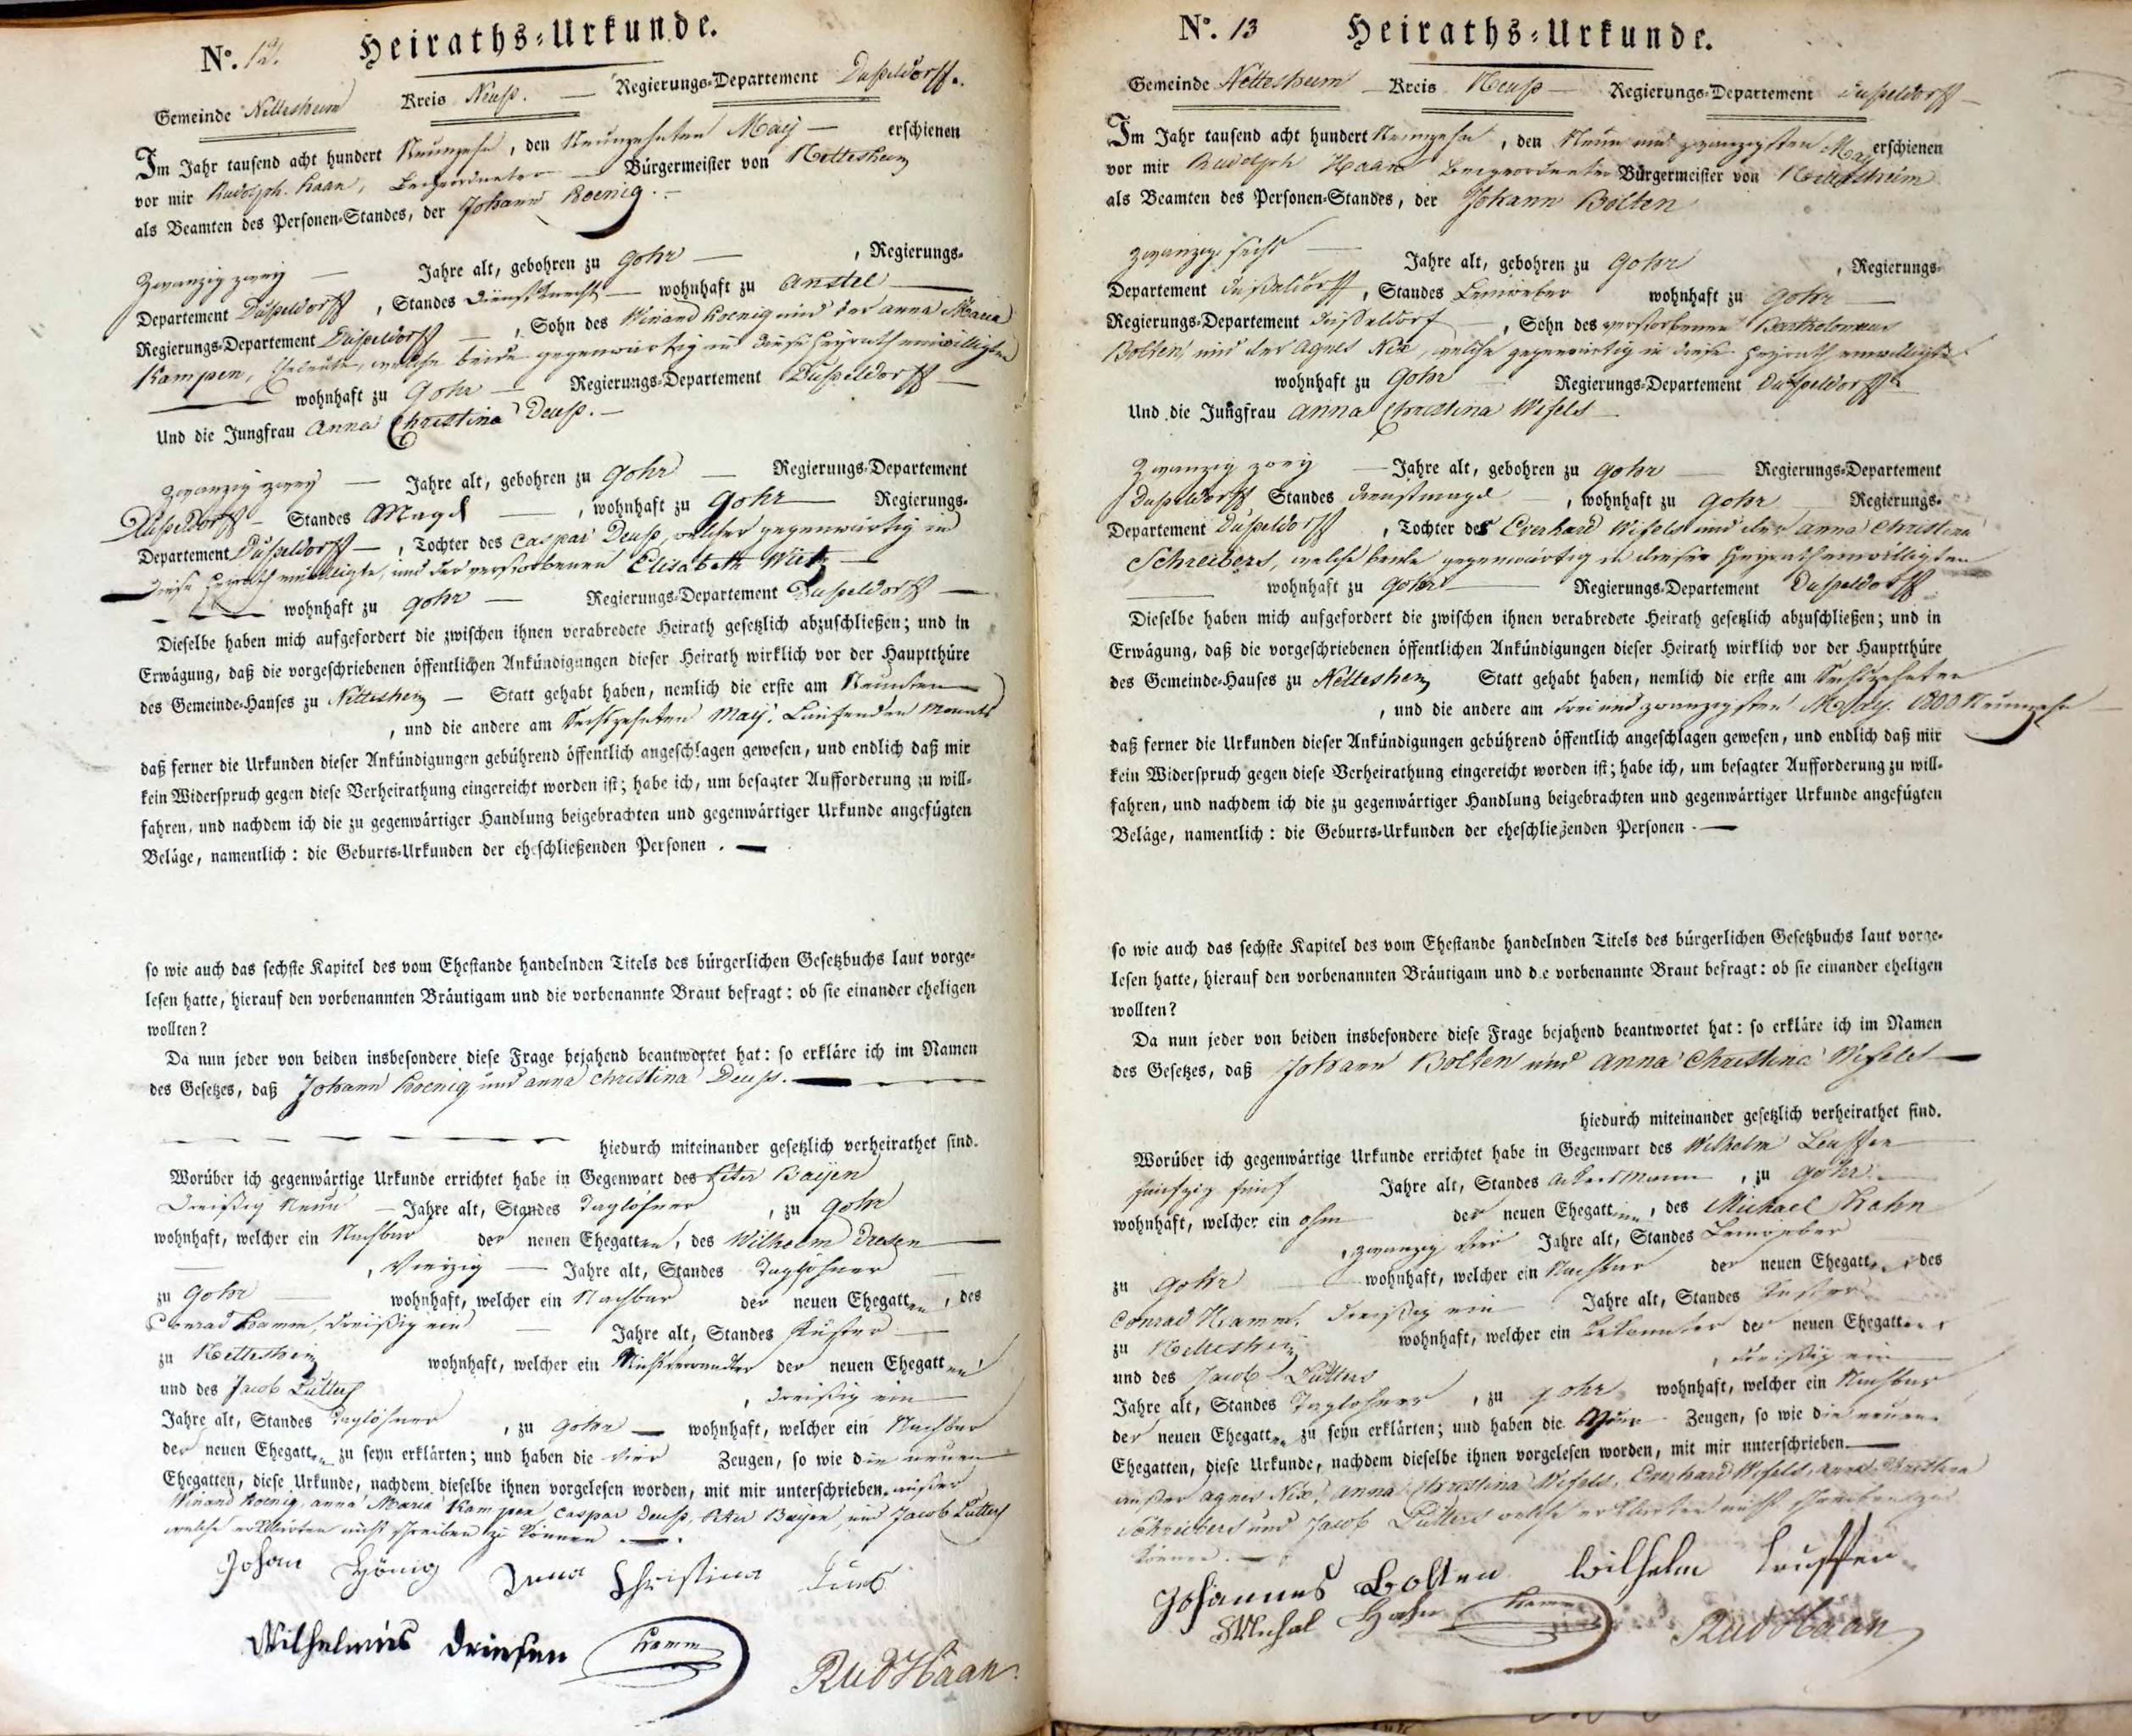 No. 12. Heiraths-Urkunde.
Gemeinde Nettesheim Kreis Neuß. — Regierungs-Departement Düßeldorff.
Im Jahr tausend acht hundert Neunzehn, den Neunzehnten May — erschienen
vor mir Rudolph Haan, Beigeordneter — Bürgermeister von Nettesheim
als Beamten des Personen-Standes, der Johann Koenig. —
Zwanzig zwey — Jahre alt, gebohren zu Gohr — , Regierungs-
Departement Düßeldorff , Standes Dienstknecht — wohnhaft zu Anstel —
Regierungs-Departement Düßeldorff — , Sohn des Winand Koenig und der Anna Maria
Kampen, Eheleute, welche beide gegenwärtig in diese Heyrath einwilligten
— wohnhaft zu Gohr — Regierungs-Departement Düßeldorff —
Und die Jungfrau Anna Christina Deuß. —
Zwanzig zwey — Jahre alt, gebohren zu Gohr — Regierungs-Departement
Düßeldorff — Standes Magd — , wohnhaft zu Gohr — Regierungs-
Departement Düßeldorff — , Tochter des Caspar Deuß, welcher gegenwärtig in
diese Heyrath einwilligte, und der verstorbenen Elisabeth —
— wohnhaft zu Gohr — Regierungs-Departement Düßeldorff —
Dieselbe haben mich aufgefordert die zwischen ihnen verabredete Heirath gesetzlich abzuschließen; und in
Erwägung, daß die vorgeschriebenen öffentlichen Ankündigungen dieser Heirath wirklich vor der Hauptthüre
des Gemeinde-Hauses zu Nettesheim — Statt gehabt haben, nemlich die erste am Neunten —
, und die andere am Sechszehnten May. Laufenden Monats
daß ferner die Urkunden dieser Ankündigungen gebührend öffentlich angeschlagen gewesen, und endlich daß mir
kein Widerspruch gegen diese Verheirathung eingereicht worden ist; habe ich, um besagter Aufforderung zu will-
fahren, und nachdem ich die zu gegenwärtiger Handlung beigebrachten und gegenwärtiger Urkunde angefügten
Beläge, namentlich: die Geburts-Urkunden der eheschließenden Personen . —
so wie auch das sechste Kapitel des vom Ehestande handelnden Titels des bürgerlichen Gesetzbuchs laut vorge-
lesen hatte, hierauf den vorbenannten Bräutigam und die vorbenannte Braut befragt: ob sie einander eheligen
wollten?
Da nun jeder von beiden insbesondere diese Frage bejahend beantwortet hat: so erkläre ich im Namen
des Gesetzes, daß Johann Koenig und Anna Christina Deuß. —
hiedurch miteinander gesetzlich verheirathet sind.
Worüber ich gegenwärtige Urkunde errichtet habe in Gegenwart des Peter Baijen
Dreißig Neun — Jahre alt, Standes Taglöhner , zu Gohr
wohnhaft, welcher ein Nachbar der neuen Ehegatten, des Wilhelm Driesen —
, Vierzig — Jahre alt, Standes Taglöhner —
zu Gohr — wohnhaft, welcher ein Nachbar der neuen Ehegatten, des
Conrad Kramm, dreißig ein — Jahre alt, Standes Küster —
zu Nettesheim wohnhaft, welcher ein Nichtverwandter der neuen Ehegatten,
und des Jacob Lütters , dreißig ein —
Jahre alt, Standes Taglöhner , zu Gohr — wohnhaft, welcher ein Nachbar
der neuen Ehegatten zu seyn erklärten; und haben die vier Zeugen, so wie die neuen
Ehegatten, diese Urkunde, nachdem dieselbe ihnen vorgelesen worden, mit mir unterschrieben. außer
Winand Koenig, Anna Maria Kampen, Caspar Deuß, Peter Baijen, und Jacob Lütters
welche erklärten nicht schreiben zu können. —
Johan König Anna Christina Deus
Wilhelmus Driesen Kramm Rud Haan
No. 13 Heiraths-Urkunde.
Gemeinde Nettesheim — Kreis Neuß — Regierungs-Departement Düßeldorff —
Im Jahr tausend acht hundert Neunzehn , den Neun und zwanzigsten May erschienen
vor mir Rudolph Haan Beigeordneter Bürgermeister von Nettesheim
als Beamten des Personen-Standes, der Johann Bolten
Zwanzig sechs — Jahre alt, gebohren zu Gohr , Regierungs-
Departement Düßeldorff , Standes Leinweber wohnhaft zu Gohr —
Regierungs-Departement Düßeldorf — , Sohn des verstorbenen Bartholomeus
Bolten, und der Agnes Nix, welche gegenwärtig in diese Heyrath einwilligte.
wohnhaft zu Gohr — Regierungs-Departement Düßeldorff —
Und die Jungfrau Anna Christina Wefels —
Zwanzig zwey — Jahre alt, gebohren zu Gohr — Regierungs-Departement
Düßeldorff Standes Dienstmagd — , wohnhaft zu Gohr — Regierungs-
Departement Düßeldorff , Tochter des Everhard Wefels und der Anna Christina
Schreibers, welche beide gegenwärtig in dieser Heyrath einwilligten
— wohnhaft zu Gohr — Regierungs-Departement Düßeldorff
Dieselbe haben mich aufgefordert die zwischen ihnen verabredete Heirath gesetzlich abzuschließen; und in
Erwägung, daß die vorgeschriebenen öffentlichen Ankündigungen dieser Heirath wirklich vor der Hauptthüre
des Gemeinde-Hauses zu Nettesheim Statt gehabt haben, nemlich die erste am Sechszehnten
, und die andere am drei und zwanzigsten May. 1800 Neunzehn
daß ferner die Urkunden dieser Ankündigungen gebührend öffentlich angeschlagen gewesen, und endlich daß mir
kein Widerspruch gegen diese Verheirathung eingereicht worden ist; habe ich, um besagter Aufforderung zu will-
fahren, und nachdem ich die zu gegenwärtiger Handlung beigebrachten und gegenwärtiger Urkunde angefügten
Beläge, namentlich: die Geburts-Urkunden der eheschließenden Personen . —
so wie auch das sechste Kapitel des vom Ehestande handelnden Titels des bürgerlichen Gesetzbuchs laut vorge-
lesen hatte, hierauf den vorbenannten Bräutigam und die vorbenannte Braut befragt: ob sie einander eheligen
wollten?
Da nun jeder von beiden insbesondere diese Frage bejahend beantwortet hat: so erkläre ich im Namen
des Gesetzes, daß Johann Bolten und Anna Christina Wefels —
hiedurch miteinander gesetzlich verheirathet sind.
Worüber ich gegenwärtige Urkunde errichtet habe in Gegenwart des Wilhelm Leusten
fünfzig fünf Jahre alt, Standes Ackersmann , zu Gohr —
wohnhaft, welcher ein Ohm der neuen Ehegattinn, des Michael Hahn
, zwanzig vier Jahre alt, Standes Leinweber
zu Gohr — wohnhaft, welcher ein Nachbar der neuen Ehegatten, des
Conrad Kramm, dreißig ein — Jahre alt, Standes Küster
zu Nettesheim wohnhaft, welcher ein Bekannter der neuen Ehegatten,
und des Jacob Lütters , dreißig ein —
Jahre alt, Standes Taglöhner , zu Gohr wohnhaft, welcher ein Nachbar
der neuen Ehegatten zu seyn erklärten; und haben die Vier Zeugen, so wie die neuen
Ehegatten, diese Urkunde, nachdem dieselbe ihnen vorgelesen worden, mit mir unterschrieben. —
außer Agnes Nix, Anna Christina Wefels, Everhard Wefels, Anna Christina
Schreibers und Jacob Lütters welche erklärten nicht schreiben zu
können. —
Johannes Bolten Wilhelm Leusten
Michal Hahn Kramm Rud Haan